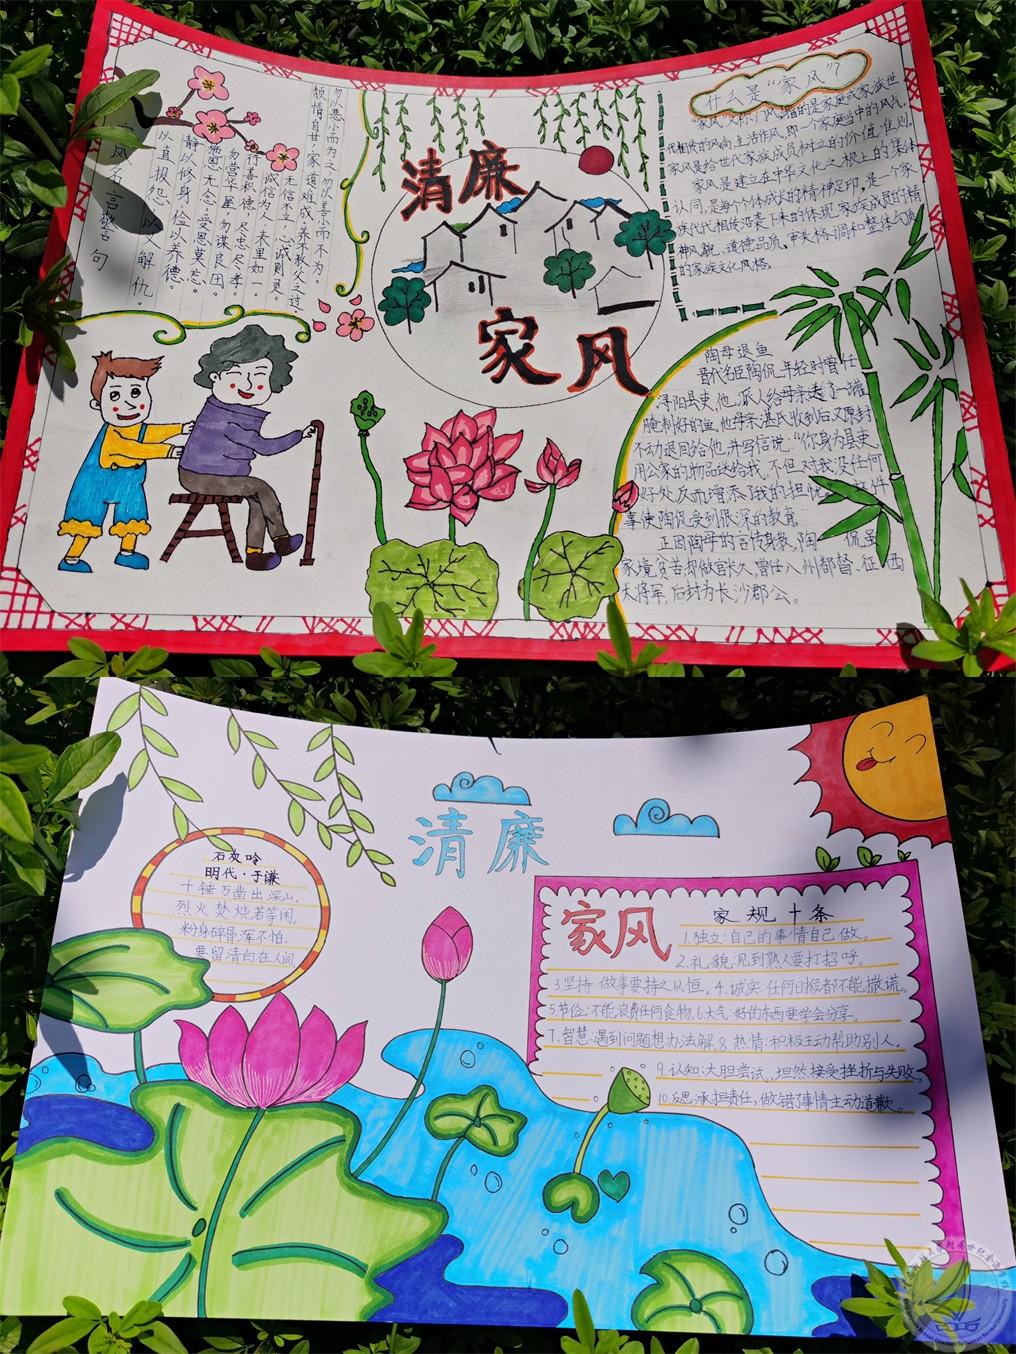 家风名言警句
以直报怨,以义解仇。
静以修身,俭以养德。
施恩无念,受恩莫忘。
勿营华屋,勿谋良田。
行善积德,尽忠尽孝。
诚信为人,表里如一。
无信不立,心诚则灵。
倾情自甘,家道难成,养不教父之过。
勿以恶小而为之,勿以善小而不为。
清廉
家风
什么是“家风”?
“家风”又称门风,指的是家庭或家族世
代相传的风尚,生活作风,即一个家庭当中的风气。
家风是给世代家族成员树立的价值准则。
家风是建立在中华文化之根上的集体
认同,是每个个体成长的精神足印,是一个家
族代代相传沿袭下来的体现家族成员的精
神风貌、道德品质、审美格调和整体气质
的家族文化风格。
陶母退鱼
晋代名臣陶侃,年轻时曾任
浔阳县吏,他派人给母亲送了一罐
腌制好的鱼,他母亲湛氏收到后,又原封
不动退回给他,并写信说:“你身为县吏,
用公家的物品送给我,不但对我没任何
好处,反而增添了我的担忧。这件
事使陶侃受到很深的教育。
正因陶母的言传身教,陶侃虽
家境贫苦却做官长久,曾任八州都督、征西
大将军,后封为长沙郡公。
清廉
石灰吟
明代·于谦
千锤万凿出深山,
烈火焚烧若等闲。
粉身碎骨浑不怕,
要留清白在人间
家风
家规十条
1.独立:自己的事情自己做。
2.礼貌:见到熟人要打招呼。
3.坚持:做事要持之以恒。4.诚实:任何时候都不能撒谎。
5.节俭:不能浪费任何食物。6.大气:好的东西要学会分享。
7.智慧:遇到问题想办法解。8.热情:积极主动帮助别人。
9.认知:大胆尝试,坦然接受挫折与失败。
10.反思:承担责任,做错事情主动道歉。